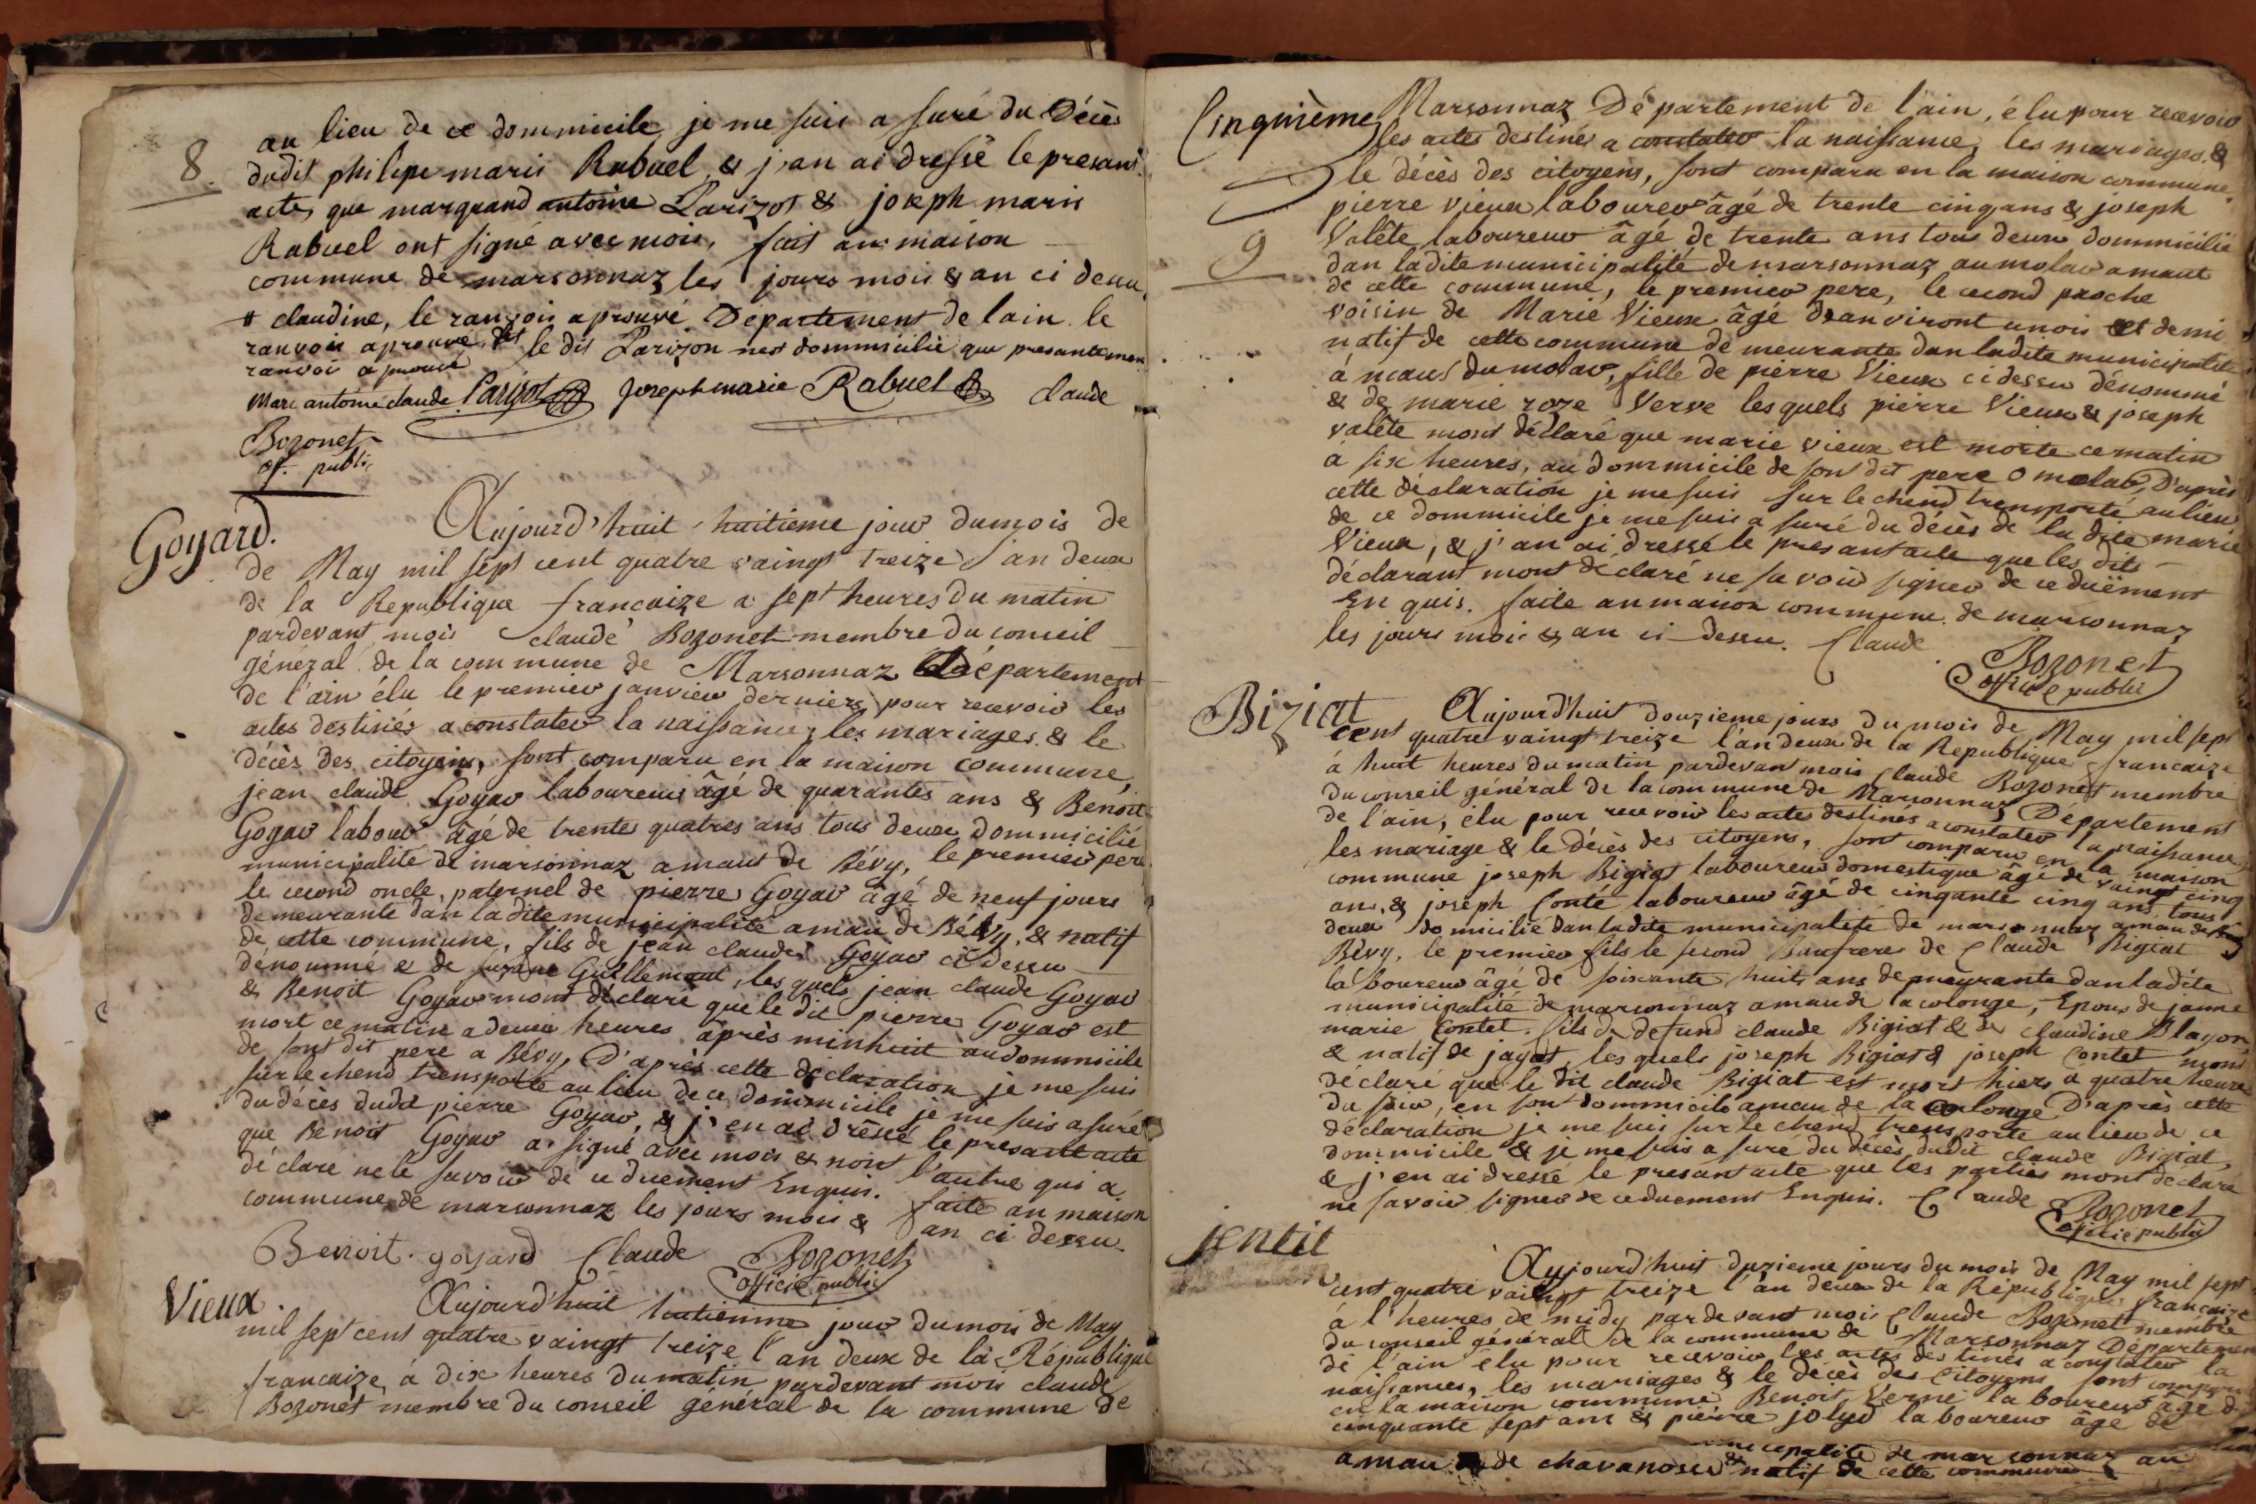 8
au lieu de ce dommicile je me suis a suré du Décès
dudit philipe marie Rabuel & j'an ai dressé le presant
acte, que marquand antoine Parizot & joseph marie
Rabuel ont signé avec mois, fait an maison
commune de marsonnaz les jours mois & an ci dessu
# claudine, le ranvois aprouvé Departement de lain le
ranvois aprouvé, le dis Parizon nest dommicilié que presantemen
ranvoi aprouvé
Marc antoine claude Parizot joseph marie Rabuel claude
Bozonet
of. public
Goyard.
Aujourd'huit huitieme jour du mois de
de May mil sept cent quatre vaingt treize l'an deux
de la Republique francaize a sept heures du matin
pardevant mois claude Bozonet membre du conseil
général de la commune de Marsonnaz Département
de l'ain élu le premier janvier derniers pour recevoir les
actes destinés a constater la naissance, les mariages & le
décès des citoyens, sont comparu en la maison commune,
jean claude Goyar laboureur âgé de quarantes ans & Benoit
Goyar labour âgé de trente quatres ans tous deux dommicilié
municipalité de marsonnaz amaut de Bévy, le premier pere
le cecond oncle paternel de pierre Goyar âgé de neuf jours
demeurante dan la dite municipalité amau de Bévy, & natif
de cette commune, fils de jean claude Goyar ci dessu
dénommé & de suzane Guillemaut, les quels jean claude Goyar
& Benoit Goyar mont déclaré que le dit pierre Goyar est
mort ce matin a deux heures après minhuit au dommicile
de sont dit pere a Bévy, D'après cette déclaration je me suis
sur le chend transporté au lieu de ce dommicile je me suis a suré
du décès dudit pierre Goyar, & j'en ai dréssé le presante acte
que Benoit Goyar a signé avec mois & nont l'autre qui a
déclare ne le savoir de ce duement Enquis. faite an maison
commune de marsonnaz les jours mois & an ci dessu.
Benoit goyard Claude Bozonet
officié public
Vieux.
Aujourd'huit huitieme jour du mois de May
mil sept cent quatre vaingt treize l'an deux de la République
francaize, à dix heures du matin pardevant mois claude
Bozonet membre du conseil général de la commune de
Cinquième
Marsonnaz Département de l'ain, élu pour recevoir
les actes destinés a constater la naissance, les mariages, &
le décès des citoyens, sont comparu en la maison commune,
pierre vieux laboureur âgé de trente cinq ans & joseph
9
Valéte laboureur âgé de trente ans tous deux dommicilié
dan ladite municipalité de marsonnaz au molar amaut
de cette commune, le premier pere, le cecond proche
voisin de Marie Vieux âgé d'anviront un ois et demi
natif de cette commune de meurante dan ladite municipalité
à du molar, fille de pierre Vieux ci dessu dénommé
& de marie roze Verve lesquels pierre Vieux & joseph
valéte mont déclaré que marie vieux est morte ce matin
à six heures, au dommicile de sont dit pere o molar, D'après
cette déclaration je me suis sur le chend transporté au lieu
de ce dommicile je me suis a suré du décès de la dite marie
Vieux, & j'an ai dressé le presant acte que les dits
déclarant mont déclaré ne savoir signer de ce duëment
Enquis. faite an maison commune de marsonnaz
les jours mois & an ci dessu. Claude
Bozonet
officié public
Biziat
Aujourd'huit douzieme jours du mois de May mil sept
cent quatre vaingt treize l'an deux de la Republique francaize
à huit heures du matin pardevant mois Claude Bozonet membre
du conseil général de la commune de Marsonnaz Département
de l'ain, élu pour recevoir les actes destinés a constater la naissance,
les mariage & le décès des citoyens, sont comparu en la maison
commune joseph Bigiat laboureur domestique âgé de vaingt cinq
ans, & joseph Conté laboureur âgé de cinqante cinq ans tous
deux domicilié dan ladite municipalité de marsonnaz amau de
Bévy, le premier fils le second Baufrere de Claude Bigiat
laboureur âgé de soisante huit ans demeurante dan ladite
municipalité de marsonnaz amaude la colonge, Epous de janne
marie Contet, fils de défund claude Bigiat & de claudine Blayon
& natif de jayat, les quels joseph Bigiat & joseph Contet mont
déclaré que le dit claude Bigiat est mort hiers à quatre heure
du soir, en sont dommicile amau de la colonge D'après cette
déclaration je me suis sur le chend transporte au lieu de ce
dommicile & je me suis a suré du décès dudit claude Bigiat,
& j'en ai dressé le presant acte que les parties mont déclaré
ne savoir signer de ce duement Enquis. Claude Bozonet
officié public
jentit
Aujourd'huit duzieme jours du mois de May mil sept
cent quatre vaingt treize l'an deux de la République francaize
à l'heures de midy pardevant mois Claude Bozonet membre
du conseil général de la commune de Marsonnaz Départemen
de l'ain élu pour recevoir les actes destinés a constater la
naissances, les mariages & le décès des Citoyens sont comparu
en la maison commune Benoit Verne laboureur âgé de
cinquante sept ans & pierre jolyd laboureur âgé de
municipalité de marsonnaz au
amau de chavanosse & natif de cette commune